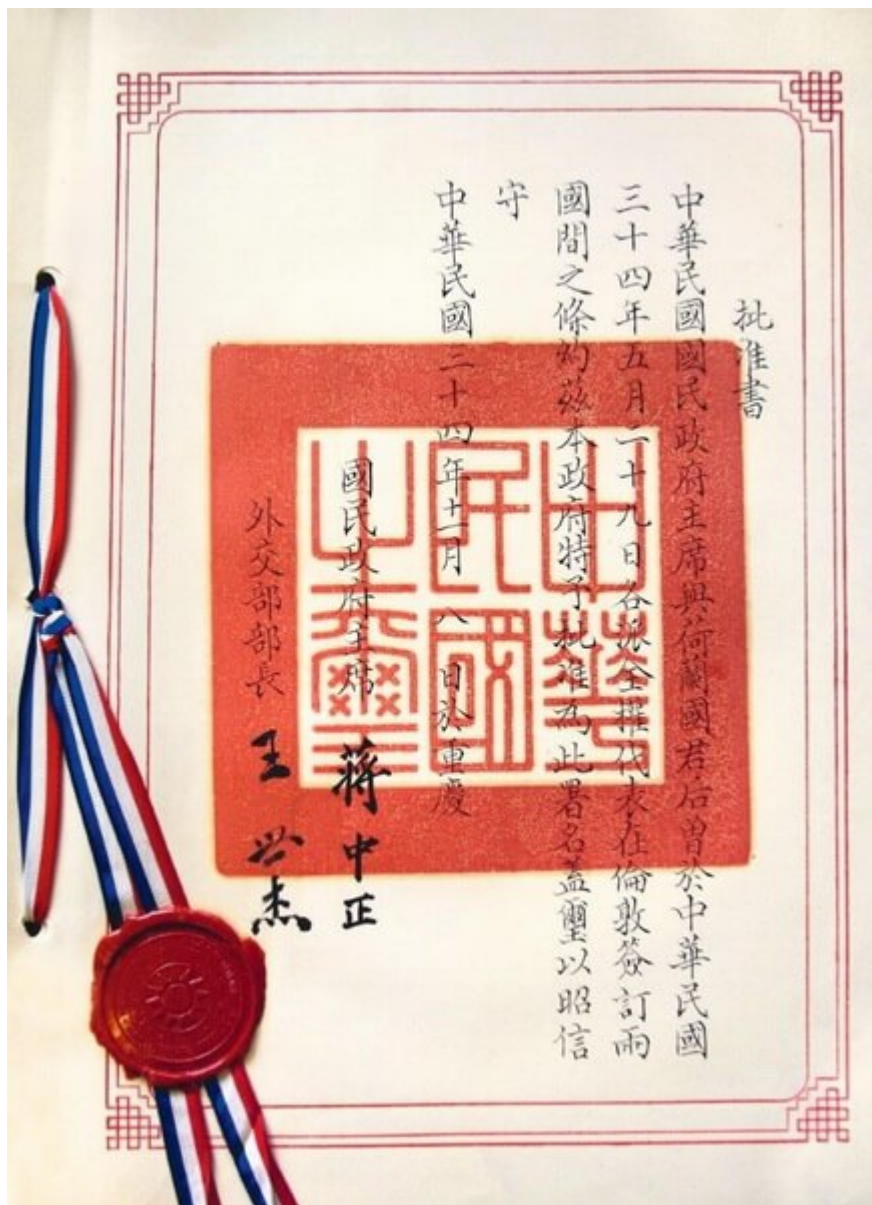 批准書
中華民國國民政府主席與荷蘭國君后曾於中華民國
三十四年五月二十九日各派全權代表在倫敦簽訂兩
國間之條約茲本政府特予批准為此署名蓋璽以昭信
守
中華民國三十四年十一月八日於重慶
國民政府主席 蔣中正
外交部部長 王世杰
中華
民國
之璽